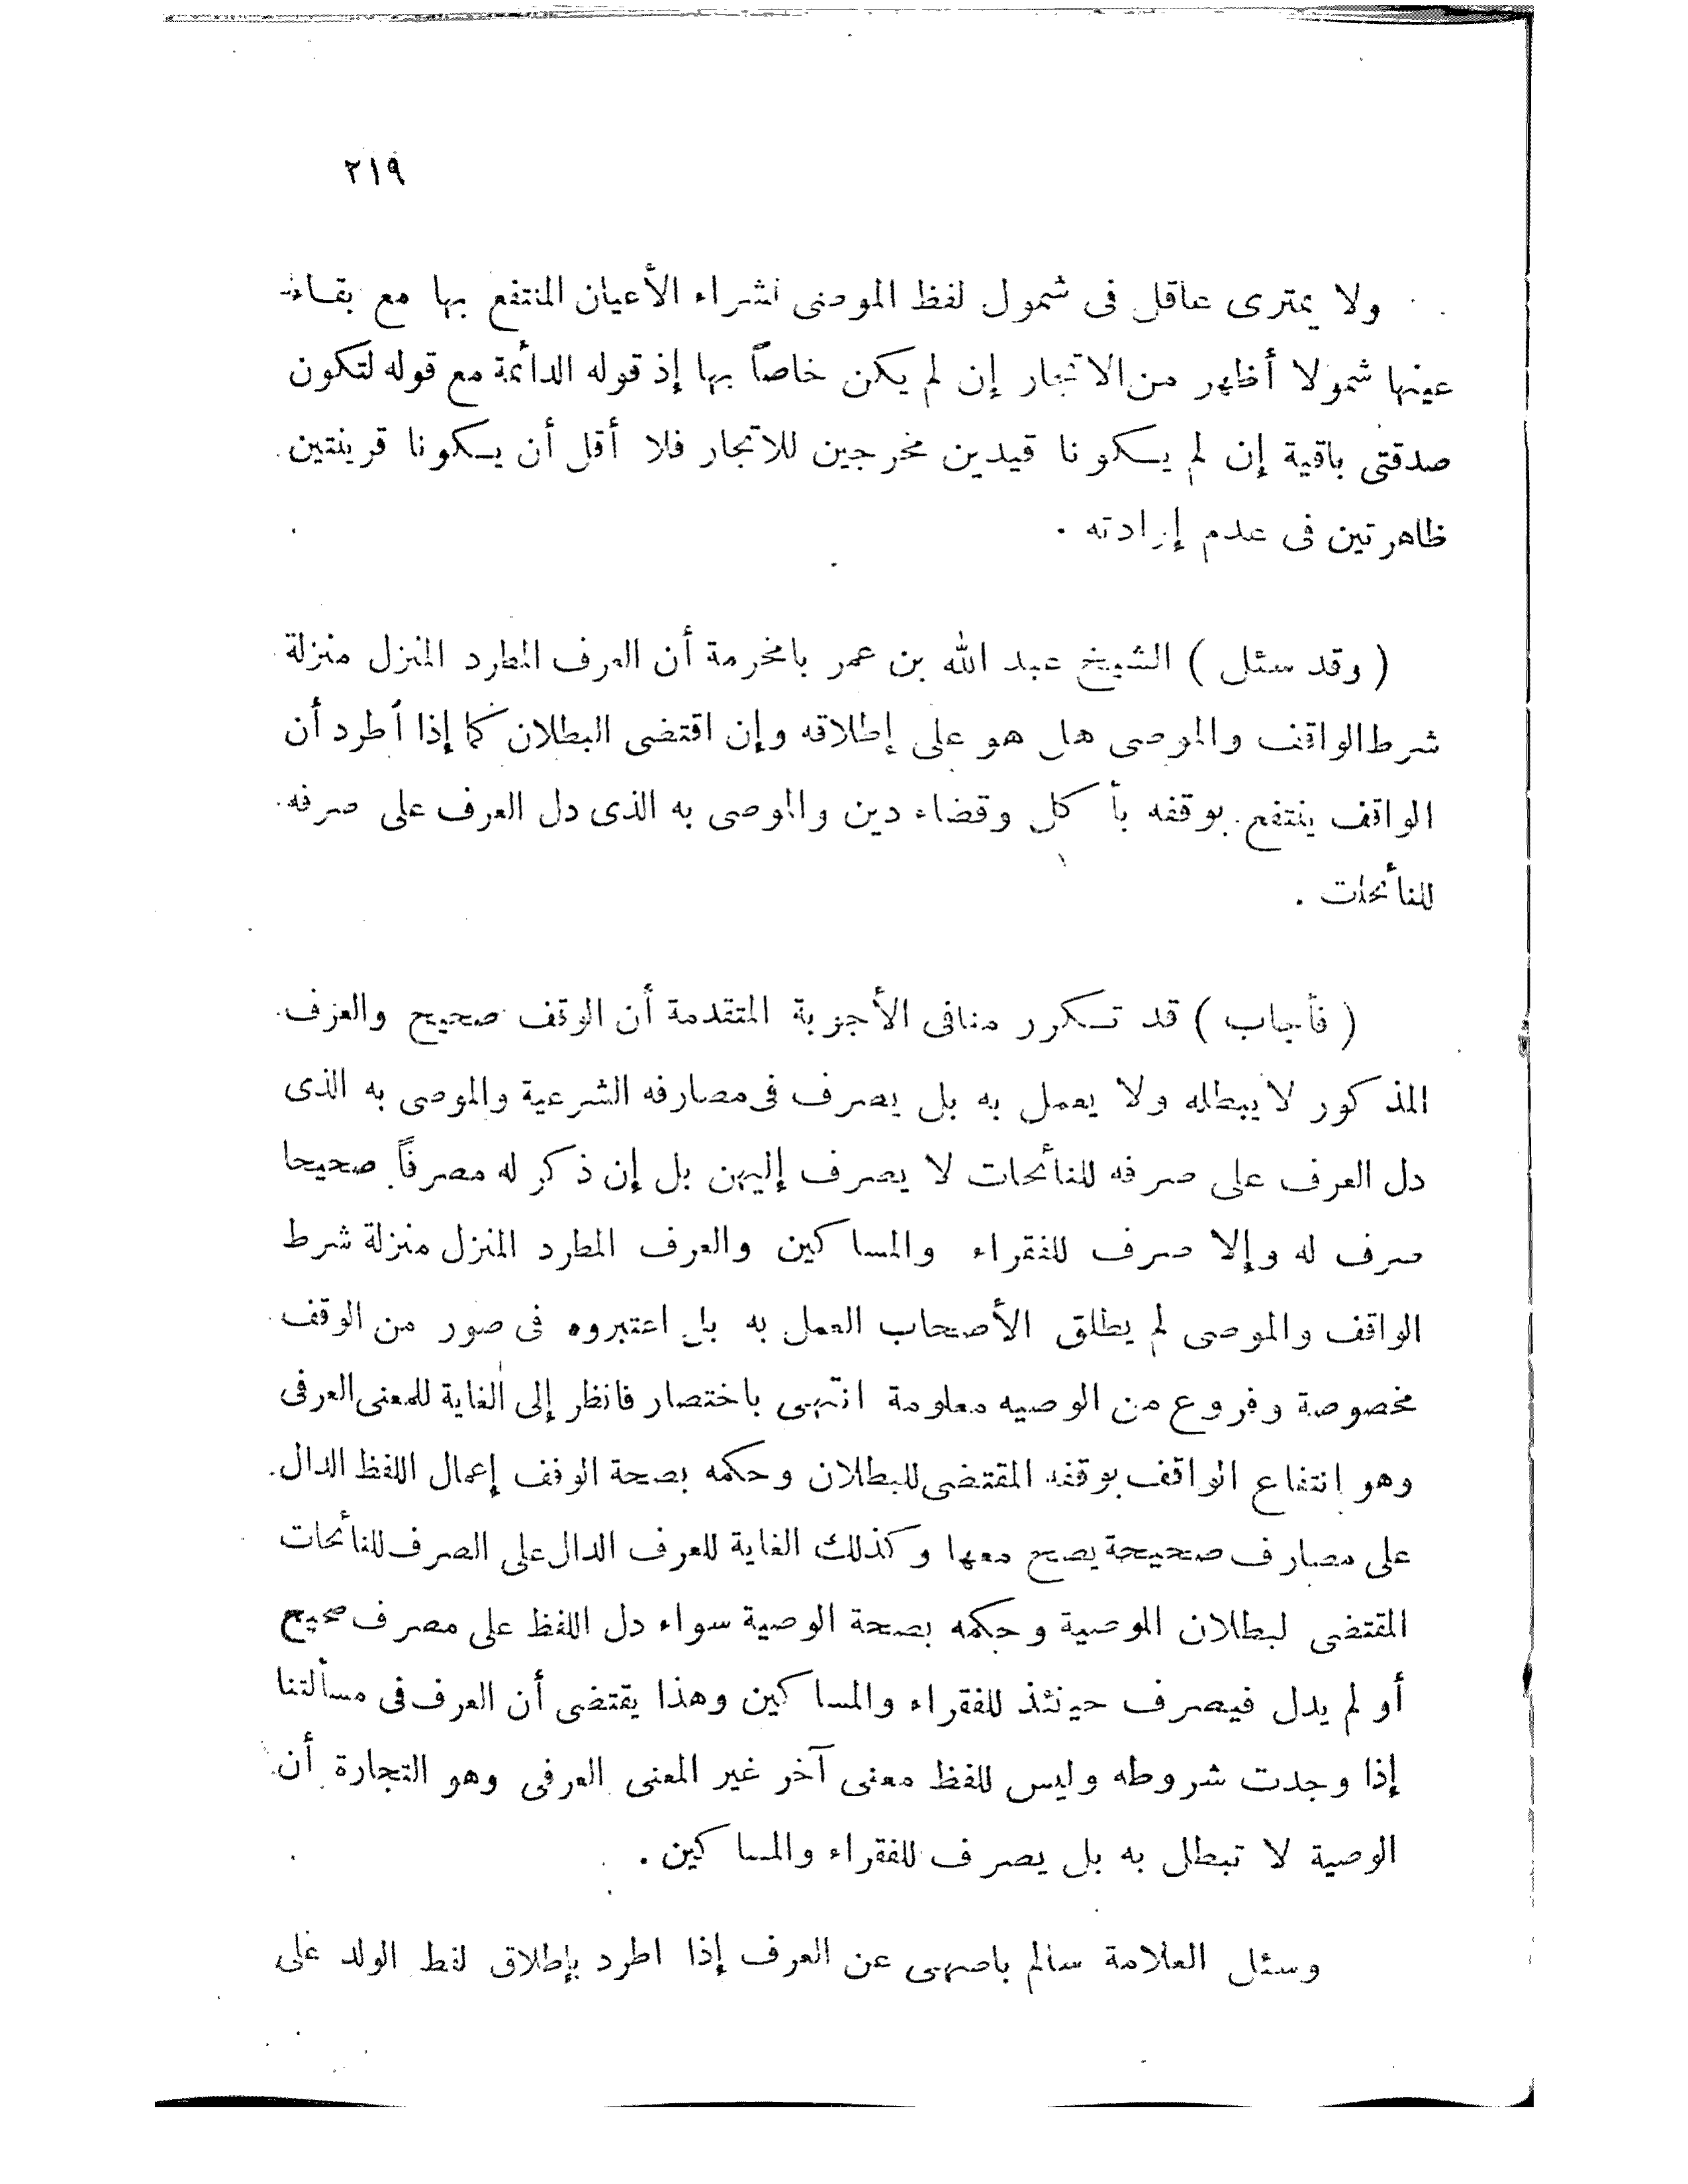 ٢١٩
ولا يمترى عاقل فى شمول لفظ الموصى لشراء الأعيان المنتفع بها مع بقاء
عينها شمولا أظهر من الاتجار إن لم يكن خاصاً بها إذ قوله الدائمة مع قوله لتكون
صدقتى باقية إن لم يكونا قيدين مخرجين للاتجار فلا أقل أن يكونا قرينتين
ظاهرتين فى عدم إرادته .
( وقد سئل ) الشيخ عبد الله بن عمر بامخرمة أن العرف المطرد المنزل منزلة
شرط الواقف والموصى هل هو على إطلاقه وإن اقتضى البطلان كما إذا أطرد أن
الواقف ينتفع بوقفه بأكل وقضاء دين والموصى به الذى دل العرف على صرفه
للنائحات .
( فأجاب ) قد تكرر منا فى الأجوبة المتقدمة أن الوقف صحيح والعرف
المذكور لا يبطله ولا يعمل به بل يصرف فى مصارفه الشرعية والموصى به الذى
دل العرف على صرفه للنائحات لا يصرف إليهن بل إن ذكر له مصرفاً صحيحا
صرف له وإلا صرف للفقراء والمساكين والعرف المطرد المنزل منزلة شرط
الواقف والموصى لم يطلق الأصحاب العمل به بل اعتبروه فى صور من الوقف
مخصوصة وفروع من الوصيه معلومة انتهى باختصار فانظر إلى الغاية للمعنى العرفى
وهو انتفاع الواقف بوقفه المقتضى للبطلان وحكمه بصحة الوقف إعمال اللفظ الدال
على مصارف صحيحة يصح معها وكذلك الغاية للعرف الدال على الصرف للنائحات
المقتضى لبطلان الوصية وحكمه بصحة الوصية سواء دل اللفظ على مصرف صحيح
أو لم يدل فيصرف حينئذ للفقراء والمساكين وهذا يقتضى أن العرف فى مسألتنا
إذا وجدت شروطه وليس للفظ معنى آخر غير المعنى العرفى وهو التجارة أن
الوصية لا تبطل به بل يصرف للفقراء والمساكين .
وسئل العلامة سالم باصهى عن العرف إذا اطرد بإطلاق لفط الولد على